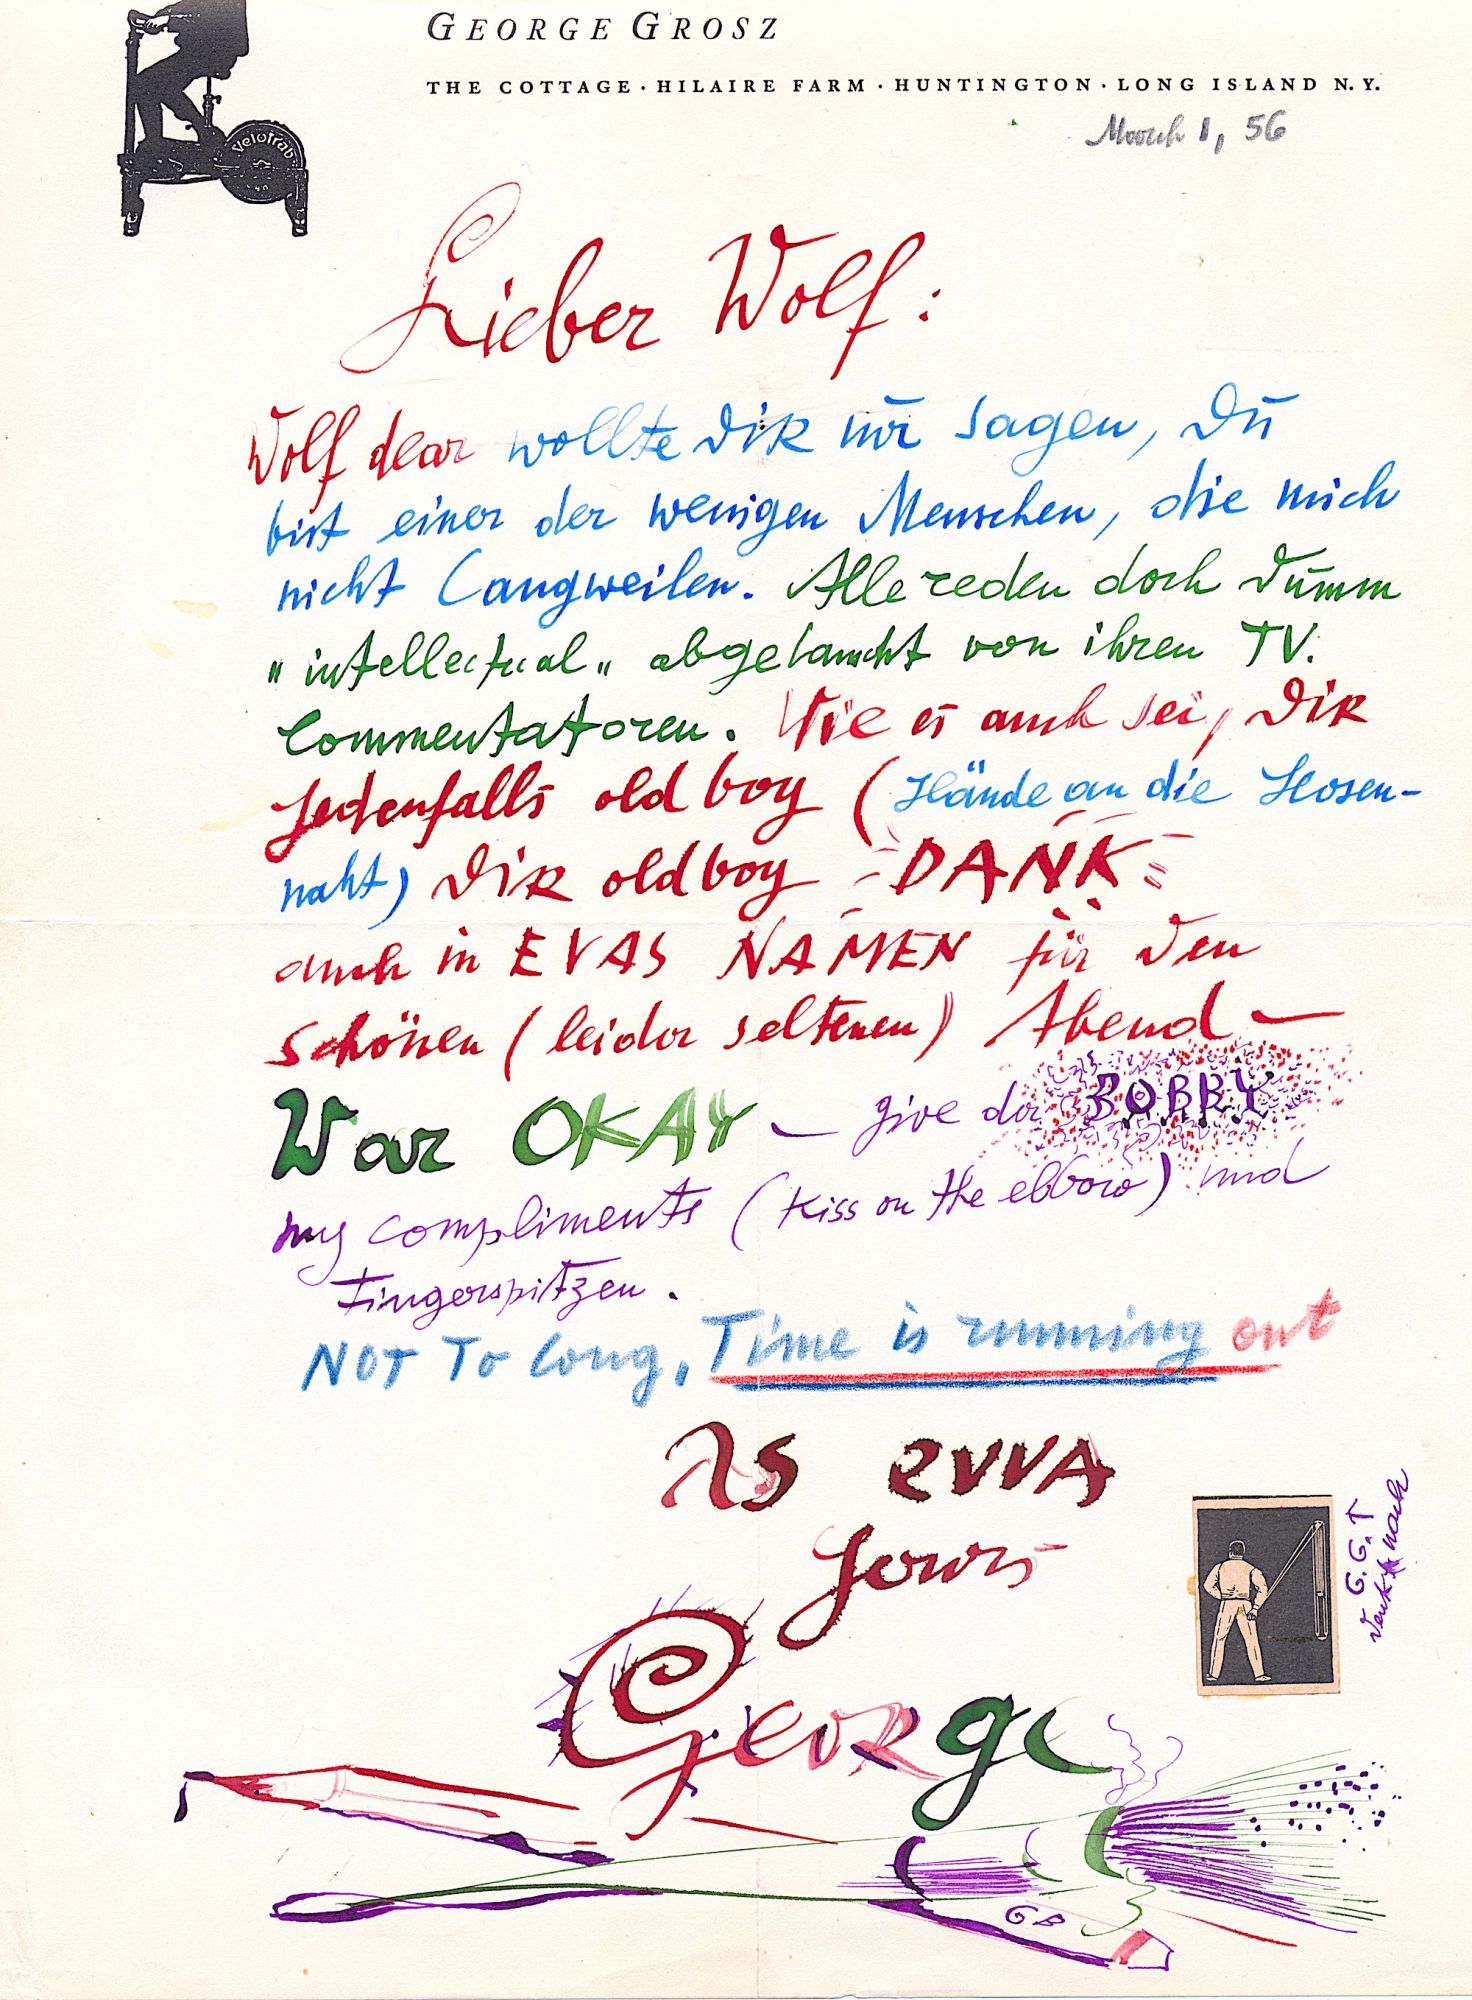 GEORGE GROSZ
THE COTTAGE · HILAIRE FARM · HUNTINGTON · LONG ISLAND N.Y.
Velotrab
March 1, 56
Lieber Wolf:
Wolf dear wollte Dir nur sagen, Du
bist einer der wenigen Menschen, die mich
nicht langweilen. Alle reden doch dumm
"intellectual" abgelauscht von ihren TV.
Commentatoren. Wie es auch sei, Dir
Jedenfalls old boy (Hände an die Hosen-
naht) Dir old boy DANK
auch in EVAS NAMEN für den
schönen (leider seltenen) Abend —
War OKAY — give der BOBBY
my compliments (kiss on the ebbow) und
Fingerspitzen.
NOT To long, Time is running out
As evva
Yours
George
G.G.T
denkt nach